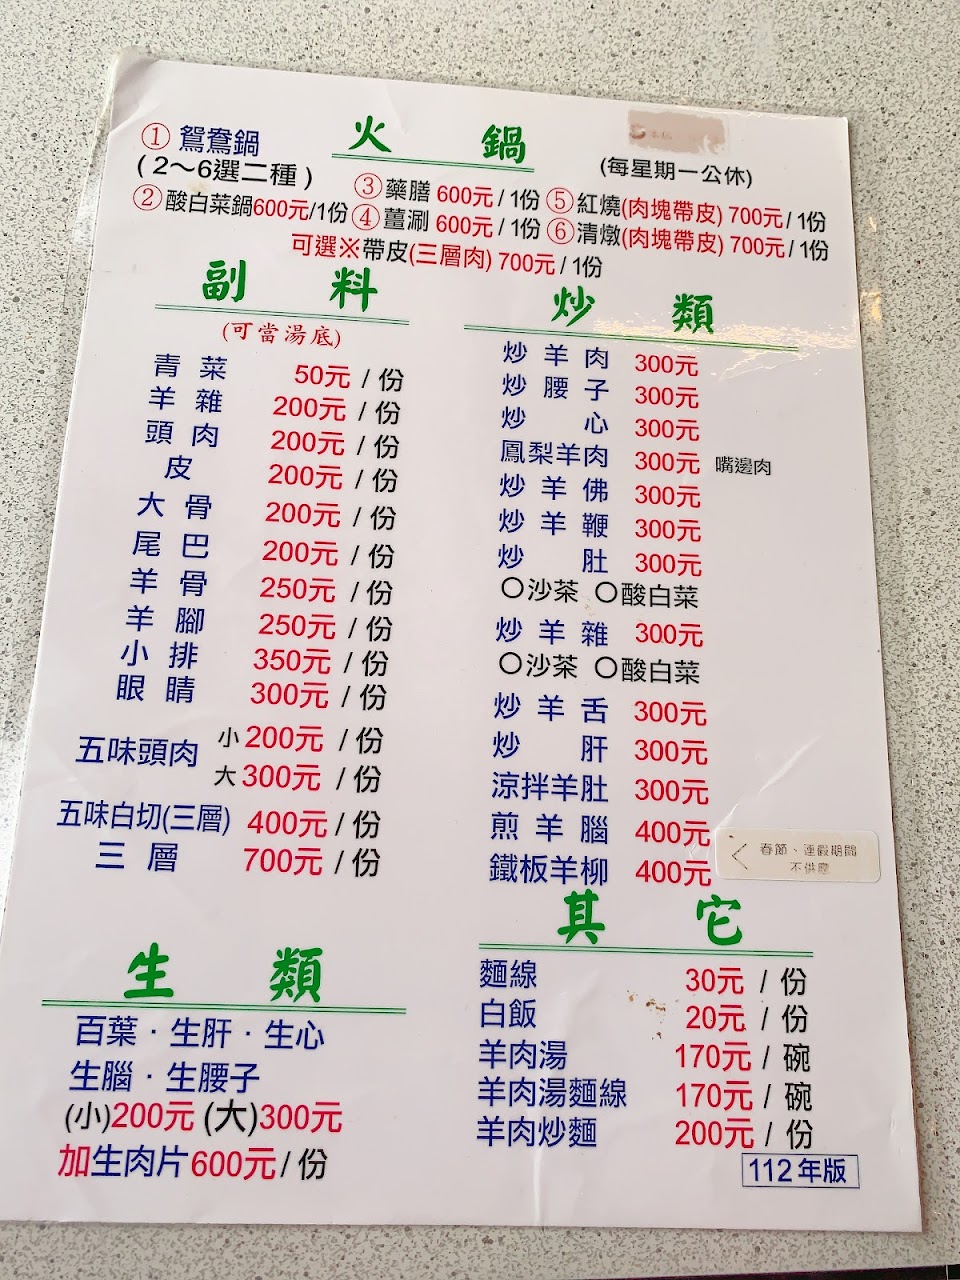 火 鍋
(每星期一公休)
① 鴛鴦鍋
(2～6選二種)
② 酸白菜鍋600元/1份
③ 藥膳 600元 / 1份
④ 薑涮 600元 / 1份
⑤ 紅燒(肉塊帶皮) 700元 / 1份
⑥ 清燉(肉塊帶皮) 700元 / 1份
可選※帶皮(三層肉) 700元 / 1份
副 料
(可當湯底)
青菜 50元 / 份
羊雜 200元 / 份
頭肉 200元 / 份
皮 200元 / 份
大骨 200元 / 份
尾巴 200元 / 份
羊骨 250元 / 份
羊腳 250元 / 份
小排 350元 / 份
眼睛 300元 / 份
五味頭肉 小 200元 / 份
大 300元 / 份
五味白切(三層) 400元 / 份
三層 700元 / 份
生 類
百葉 · 生肝 · 生心
生腦 · 生腰子
(小)200元 (大)300元
加生肉片600元 / 份
炒 類
炒羊肉 300元
炒腰子 300元
炒心 300元
鳳梨羊肉 300元 嘴邊肉
炒羊佛 300元
炒羊鞭 300元
炒肚 300元
○沙茶 ○酸白菜
炒羊雜 300元
○沙茶 ○酸白菜
炒羊舌 300元
炒肝 300元
涼拌羊肚 300元
煎羊腦 400元
鐵板羊柳 400元
春節、連假期間
不供應
其 它
麵線 30元 / 份
白飯 20元 / 份
羊肉湯 170元 / 碗
羊肉湯麵線 170元 / 碗
羊肉炒麵 200元 / 份
112年版